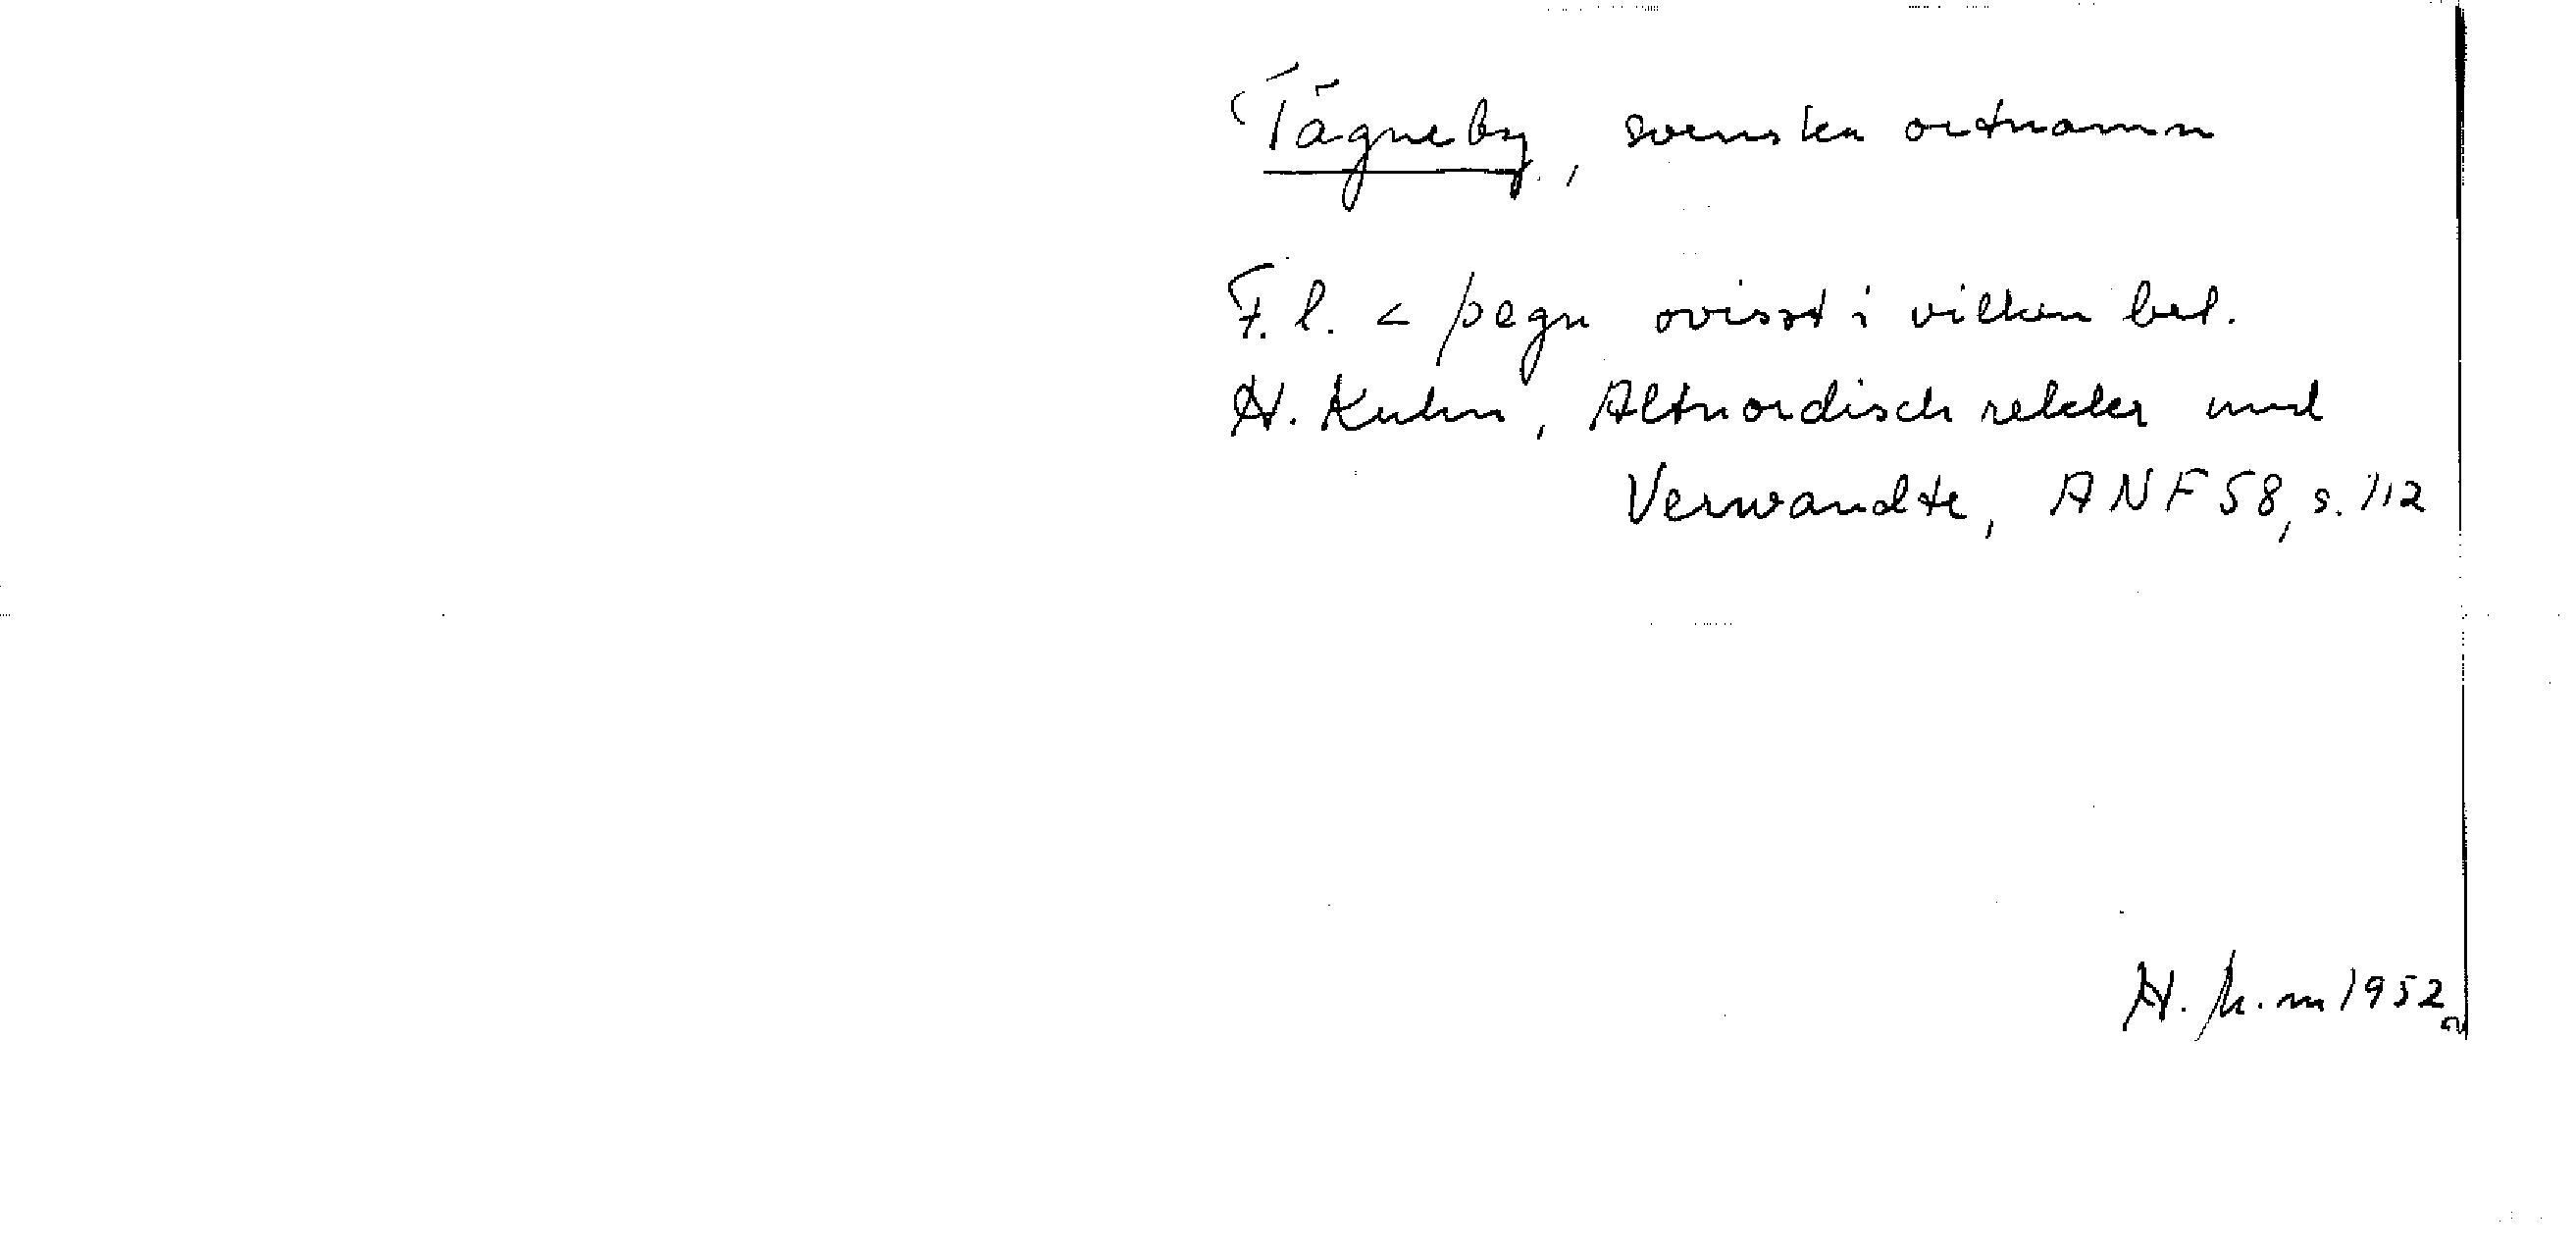 Tägneby, svenska ortnamn
F.l. < þegn ovisst i vilken bet.
H. Kuhn, Altnordisch rekkr und
Verwandte, ANF 58, s. 112
H. 1952